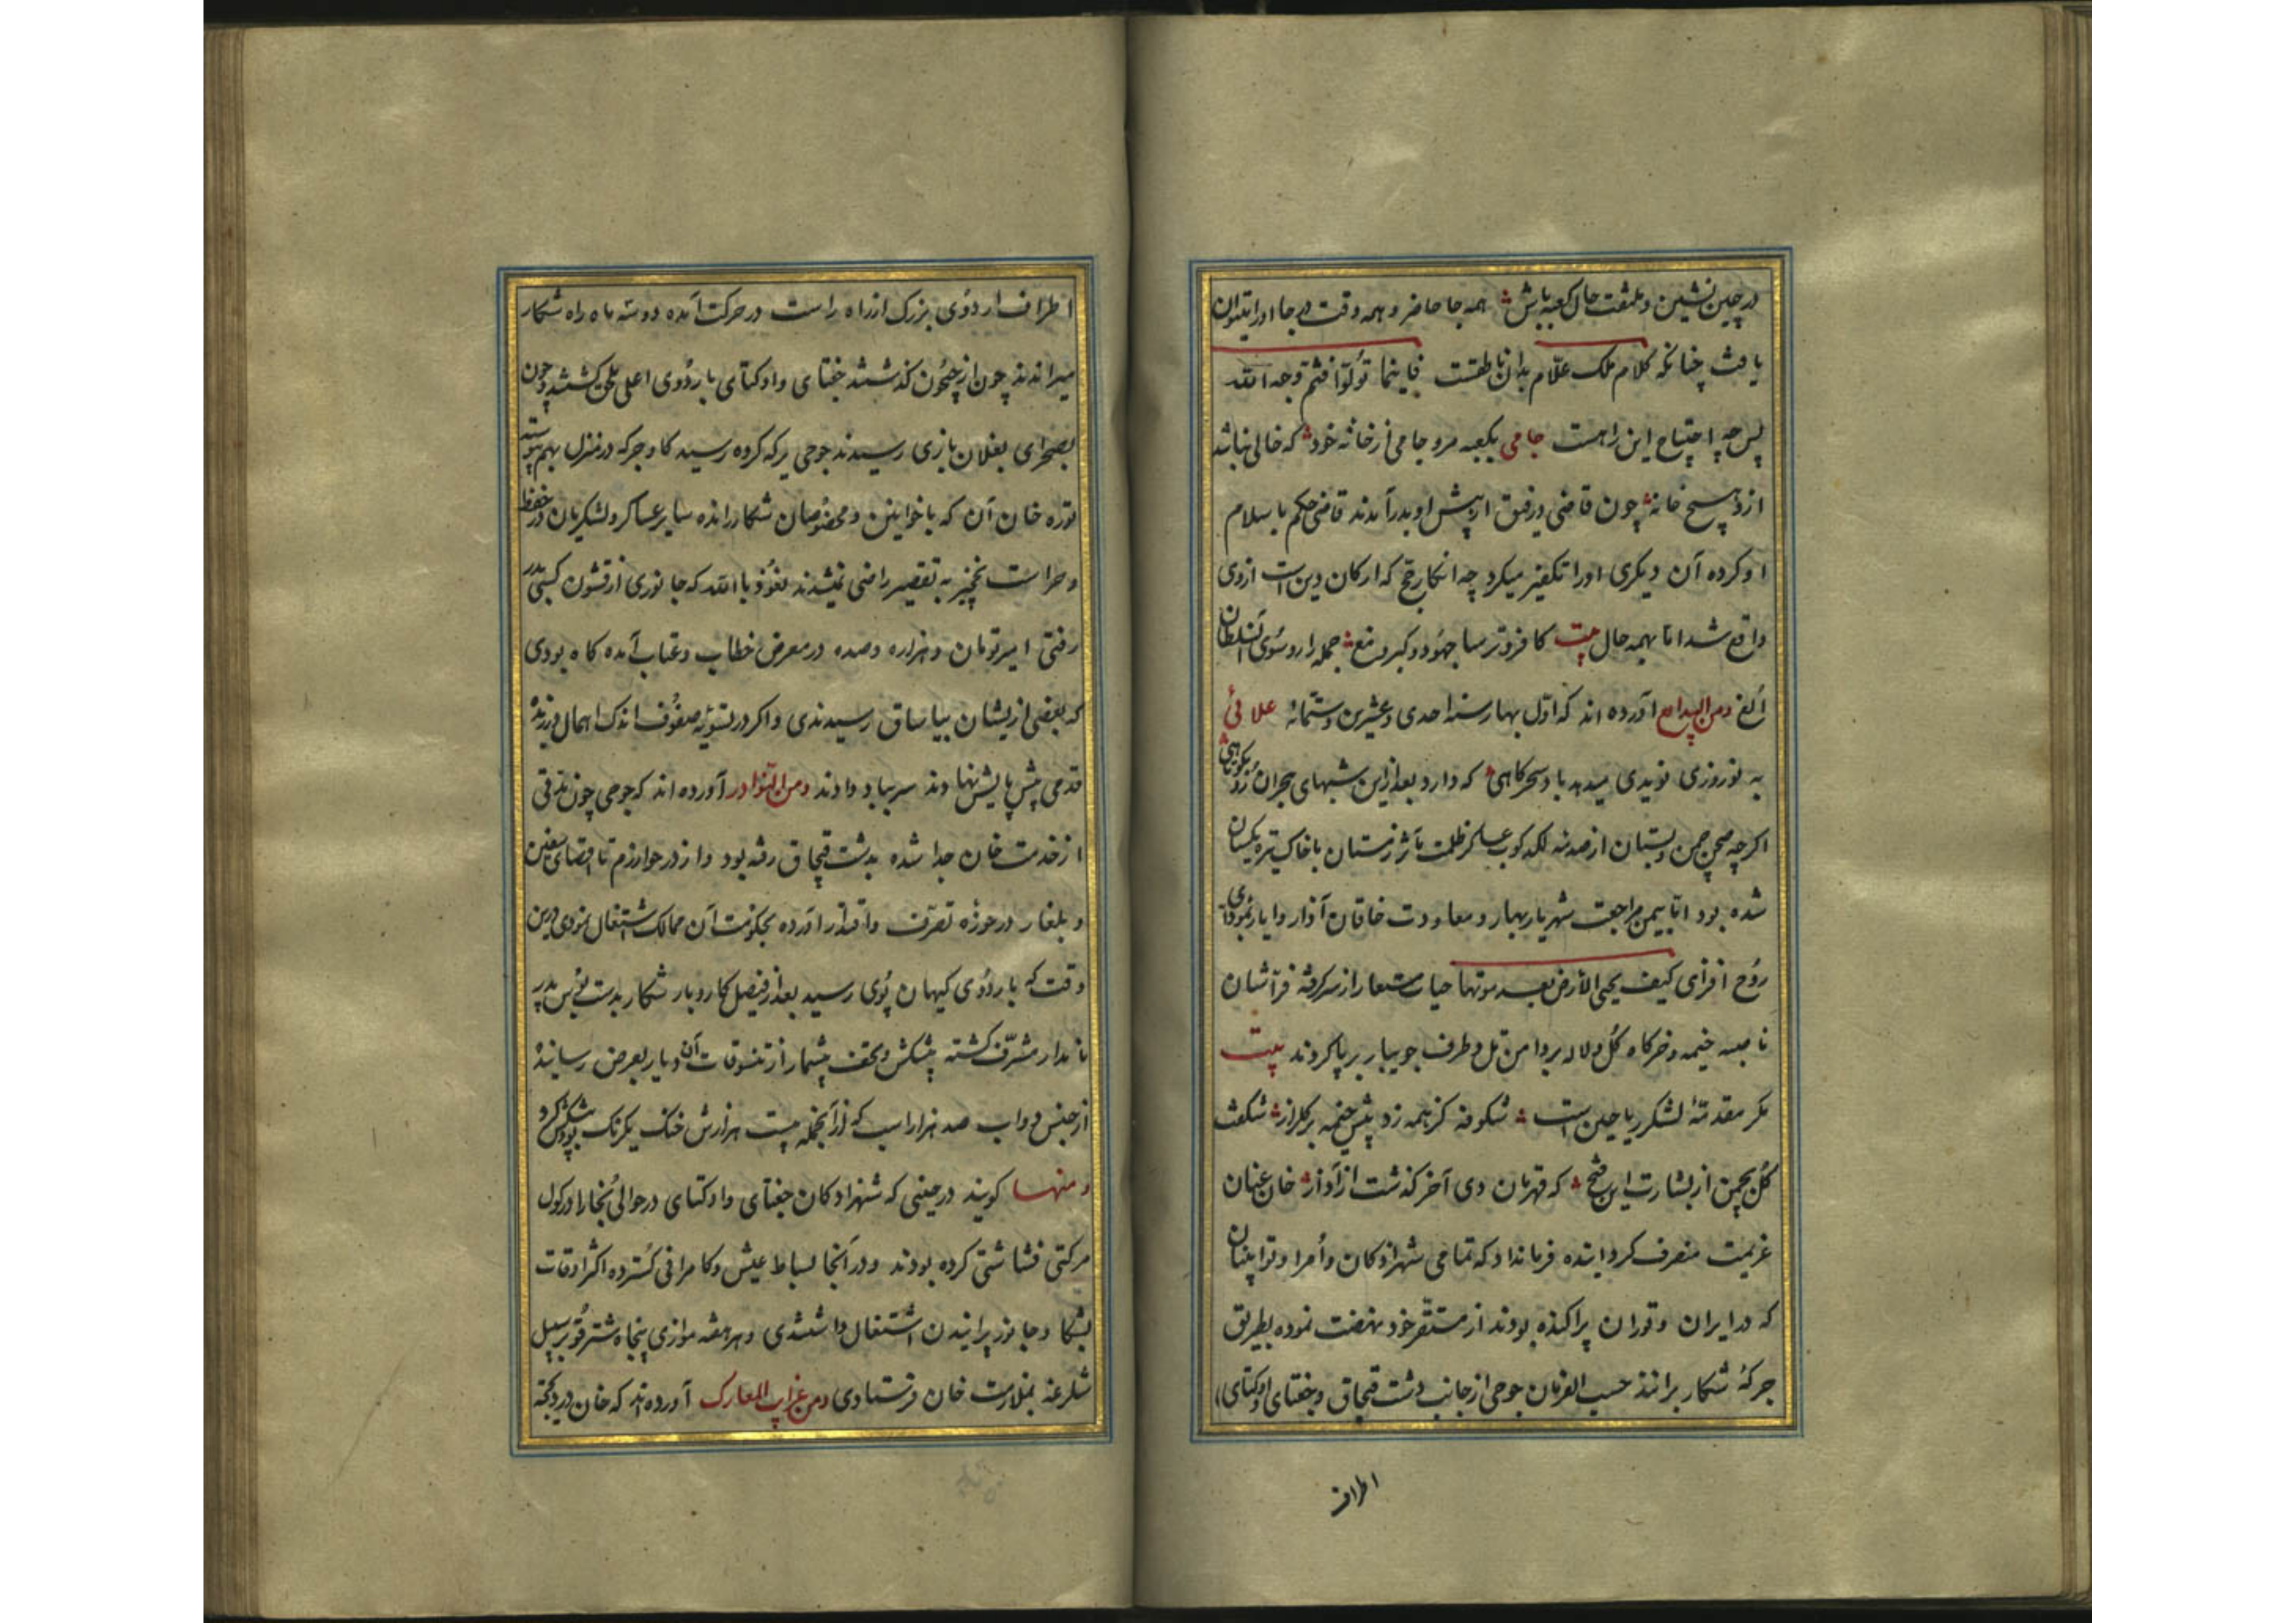 در چین نشین و ملتفت حال کعبه باش همه جا حاضر و همه وقت هر جا او را بتوان
یافت چنانکه کلام ملک علّام بدان ناطقست فاینما تُولّوا فثم وجه الله
پس چه احتیاج این راهست جامی بکعبه مرو جامی از خانه خود که خالی نباشد
ازو هیچ خانه چون قاضی و رفیق از پیش او بدر آمدند قاضی حکم با سلام
او کرده آن دیگری او را تکفیر میکرد چه انکار حج که ارکان دین است ازوی
واقع شد اما بهمه حال بیت کافر و ترسا جهود و کبر و مغ جمله را رو سوی آن سلطان
اُلغ ومن البدایع آورده اند که اوّل بهار سنه احدی و عشرین و ستمائه علائی
به نوروزی نویدی میدهد باد سحرکاهی که دارد بعد ازین شبهای هجران رُو بکوتاهی
اکرچه صحن چمن و بستان از صدمه لکدکوب عساکر ظلمت مآثر زمستان با خاک تیره یکسان
شده بود امّا بیمن مراجعت شهریار بهار و معاودت خاقان آذار و ایار
رُوح افزای کیف یحیی الأرض بعد موتها حیات مستعار از سر کرفته فرّاشان
نامیه خیمه و خرکاه کُل و لاله بر دامن تل و طرف جویبار برپا کردند بیت
مکر مقدمّهٔ لشکر ریاحین است شکوفه کز همه زد پیش خیمه بر کلزار شکفت
کُل بچمن از بشارت این فتح که قهرمان دی آخر کذشت از آذار خان عنان
عزیمت منصرف کردانیده فرمان داد که تمامی شهزادکان و اُمرا و توابینان
که در ایران و توران پراکنده بودند از مستقّر خود نهضت نموده بطریق
جرکهٔ شکار برانند حسب الفرمان جوجی از جانب دشت قبچاق و جغتای و اوکتای
اطراف
اطراف اردوی بزرک از راه راست در حرکت آمده دو سه ماه راه شکار
میراندند چون از جیحُون کذشتند جغتای و اوکتای باردُوی اعلی ملحق کشتند و چون
بصحرای بغلان بازی رسیدند جوجی یرکه کروه رسید کا و جرکه در منزل بهم پیوسته
توره خان آن که با خواتین و مخصُوصان شکار رانده سایر عساکر و لشکریان در حفظ
و حراست نخچیز به تقصیر راضی نمیشدند نعُوذ با الله که جانوری از قشون کسی بدر
رفتی امیر تومان و هزاره و صده در معرض خطاب و عتاب آمده کاه بودی
که بعضی ازیشان بیاساق رسیدندی و اکر در تسویهٔ صفُوف اندک اهمال ورزیده
قدمی پیش یا پیش نهادند سر بباد دادند ومن النوادر آورده اند که جوجی چون مدتی
از خدمت خان جدا شده بدشت قبچاق رفته بود و از در خوارزم تا اقصای سقین
و بلغار در حوزه تصرّف و اقتدار آورده بحکومت آن ممالک اشتغال نمودی درین
وقت که باردُوی کیهان پُوی رسید بعد از فیصل کار و بار شکار بدست بُوس پدر
نامدار مشرّف کشته پیشکش و تحف بیشمار از تنسوقات آن دیار بعرض رسانیده
از جنس دواب صد هزار اسب که از آنجمله بیست هزارش خنک یکرنک بود پیشکش کرد
و منها کویند در حینی که شهزادکان جغتای و اوکتای در حوالی بُخارا و رکول
مرکتی قشاشتی کرده بودند و در آنجا بساط عیش و کامرانی کسترده اکثر اوقات
بشکار و جانور پرانیدن اشتغال داشتندی و هر هفته موازی پنجاه شتر قُو بر سبیل
شلرغه بملازمت خان فرستادی ومن غرایب المعارک آورده اند که خان در دکجه